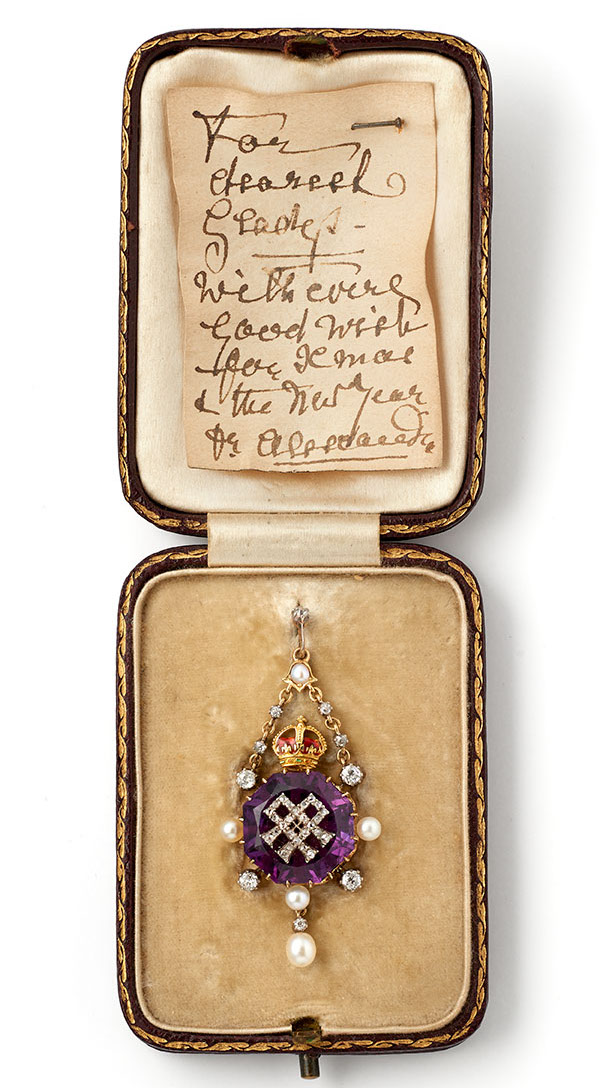 For
dearest
Gladys -
With every
good wish
for Xmas
& the New Year
fr Alexandra